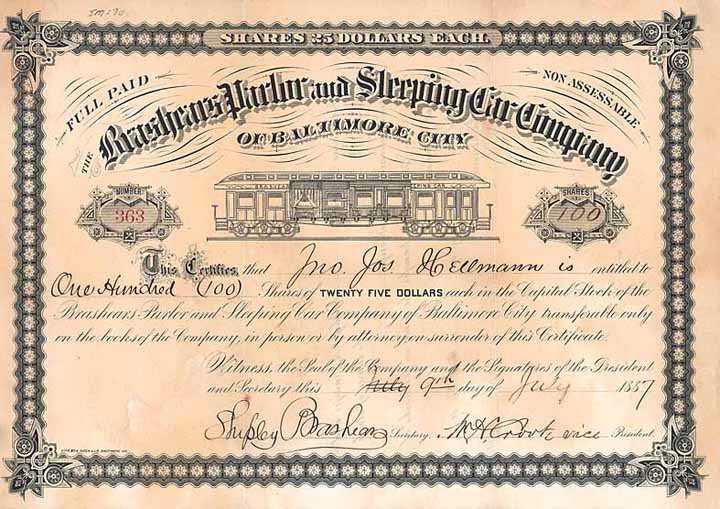 SHARES 25 DOLLARS EACH.
FULL PAID
NON ASSESSABLE
THE Brashears Parlor and Sleeping Car Company
OF BALTIMORE CITY
NUMBER
363
SHARES
100
This Certifies that Jno. Jos. Hellmann is entitled to
One Hundred (100) Shares of TWENTY FIVE DOLLARS each in the Capital Stock of the
Brashears Parlor and Sleeping Car Company of Baltimore City transferable only
on the books of the Company, in person or by attorney on surrender of this Certificate.
Witness, the Seal of the Company and the Signatures of the President
and Secretary this July 9th day of July 1887
Shipley Brashears Secretary. W.H. Crook vice President.